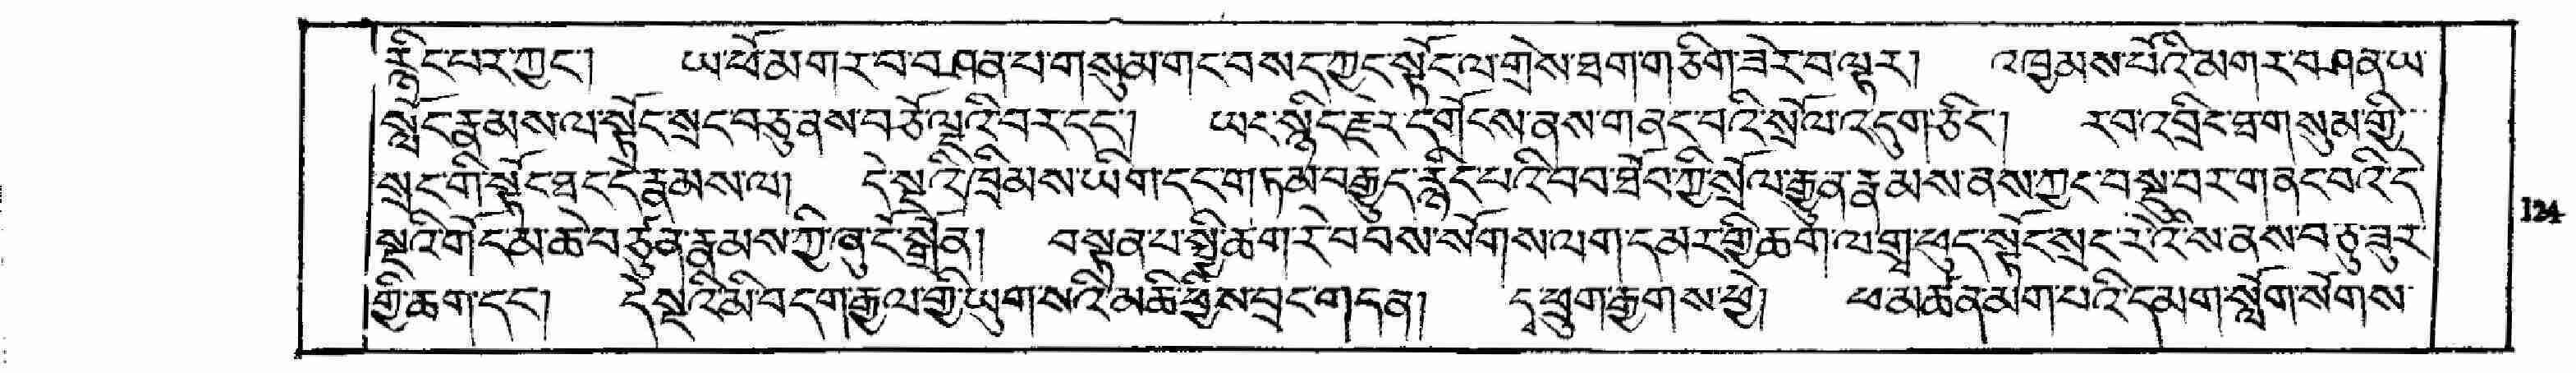 རྙིང་པར་ཀྱང་། ཡ་ཕོ་མགར་བ་བཤན་པ་གསུམ་གང་བསད་ཀྱང་སྟོང་ལ་གྲེས་ཐག་གཅིག་ཟེར་བ་ལྟར། འཁྱམས་པོའི་མགར་བཤན་ཡ་
སློང་རྣམས་ལ་སྟོང་སྲང་བཅུ་ནས་བཅོ་ལྔའི་བར་དང་། ཡང་སྙིང་རྗེར་དགོངས་ནས་གནང་བའི་སྲོལ་འདུག་ཅིང་། རབ་འབྲིང་ཐག་སུམ་གྱི་
སྲང་གི་སྟོང་ཐང་དེ་རྣམས་ལ། དེ་སྔའི་ཁྲིམས་ཡིག་དང་གཏམ་བརྒྱུད་རྙིང་པའི་བབ་ཐོབ་ཀྱི་སྲོལ་རྒྱུན་རྣམས་ནས་ཀྱང་བསྔ་བར་གནང་བའི་དེ་
སྔའི་གོང་མ་ཆེ་བཙུན་རྣམས་ཀྱི་ཞུ་ངོ་སྒྲོན། བསྟན་པ་སྤྱི་ཆག་རེ་བབས་སོགས་ལག་དམར་གྱི་ཆག་ལ་གྲྭ་ཕུད་སྟོང་སྲང་རེ་འིས་ནས་བཅུ་ཟུར་
གྱི་ཆག་དང་། དེ་སྔའི་མི་བདག་རྒྱལ་གྱི་ཡུག་སའི་མཆི་ཕྱིས་བྲང་གདན། དྭ་ཕྲུག་རྒྱགས་ཕྱེ། ཕ་མཚོན་མེག་པའི་དམག་སློག་སོགས་
124